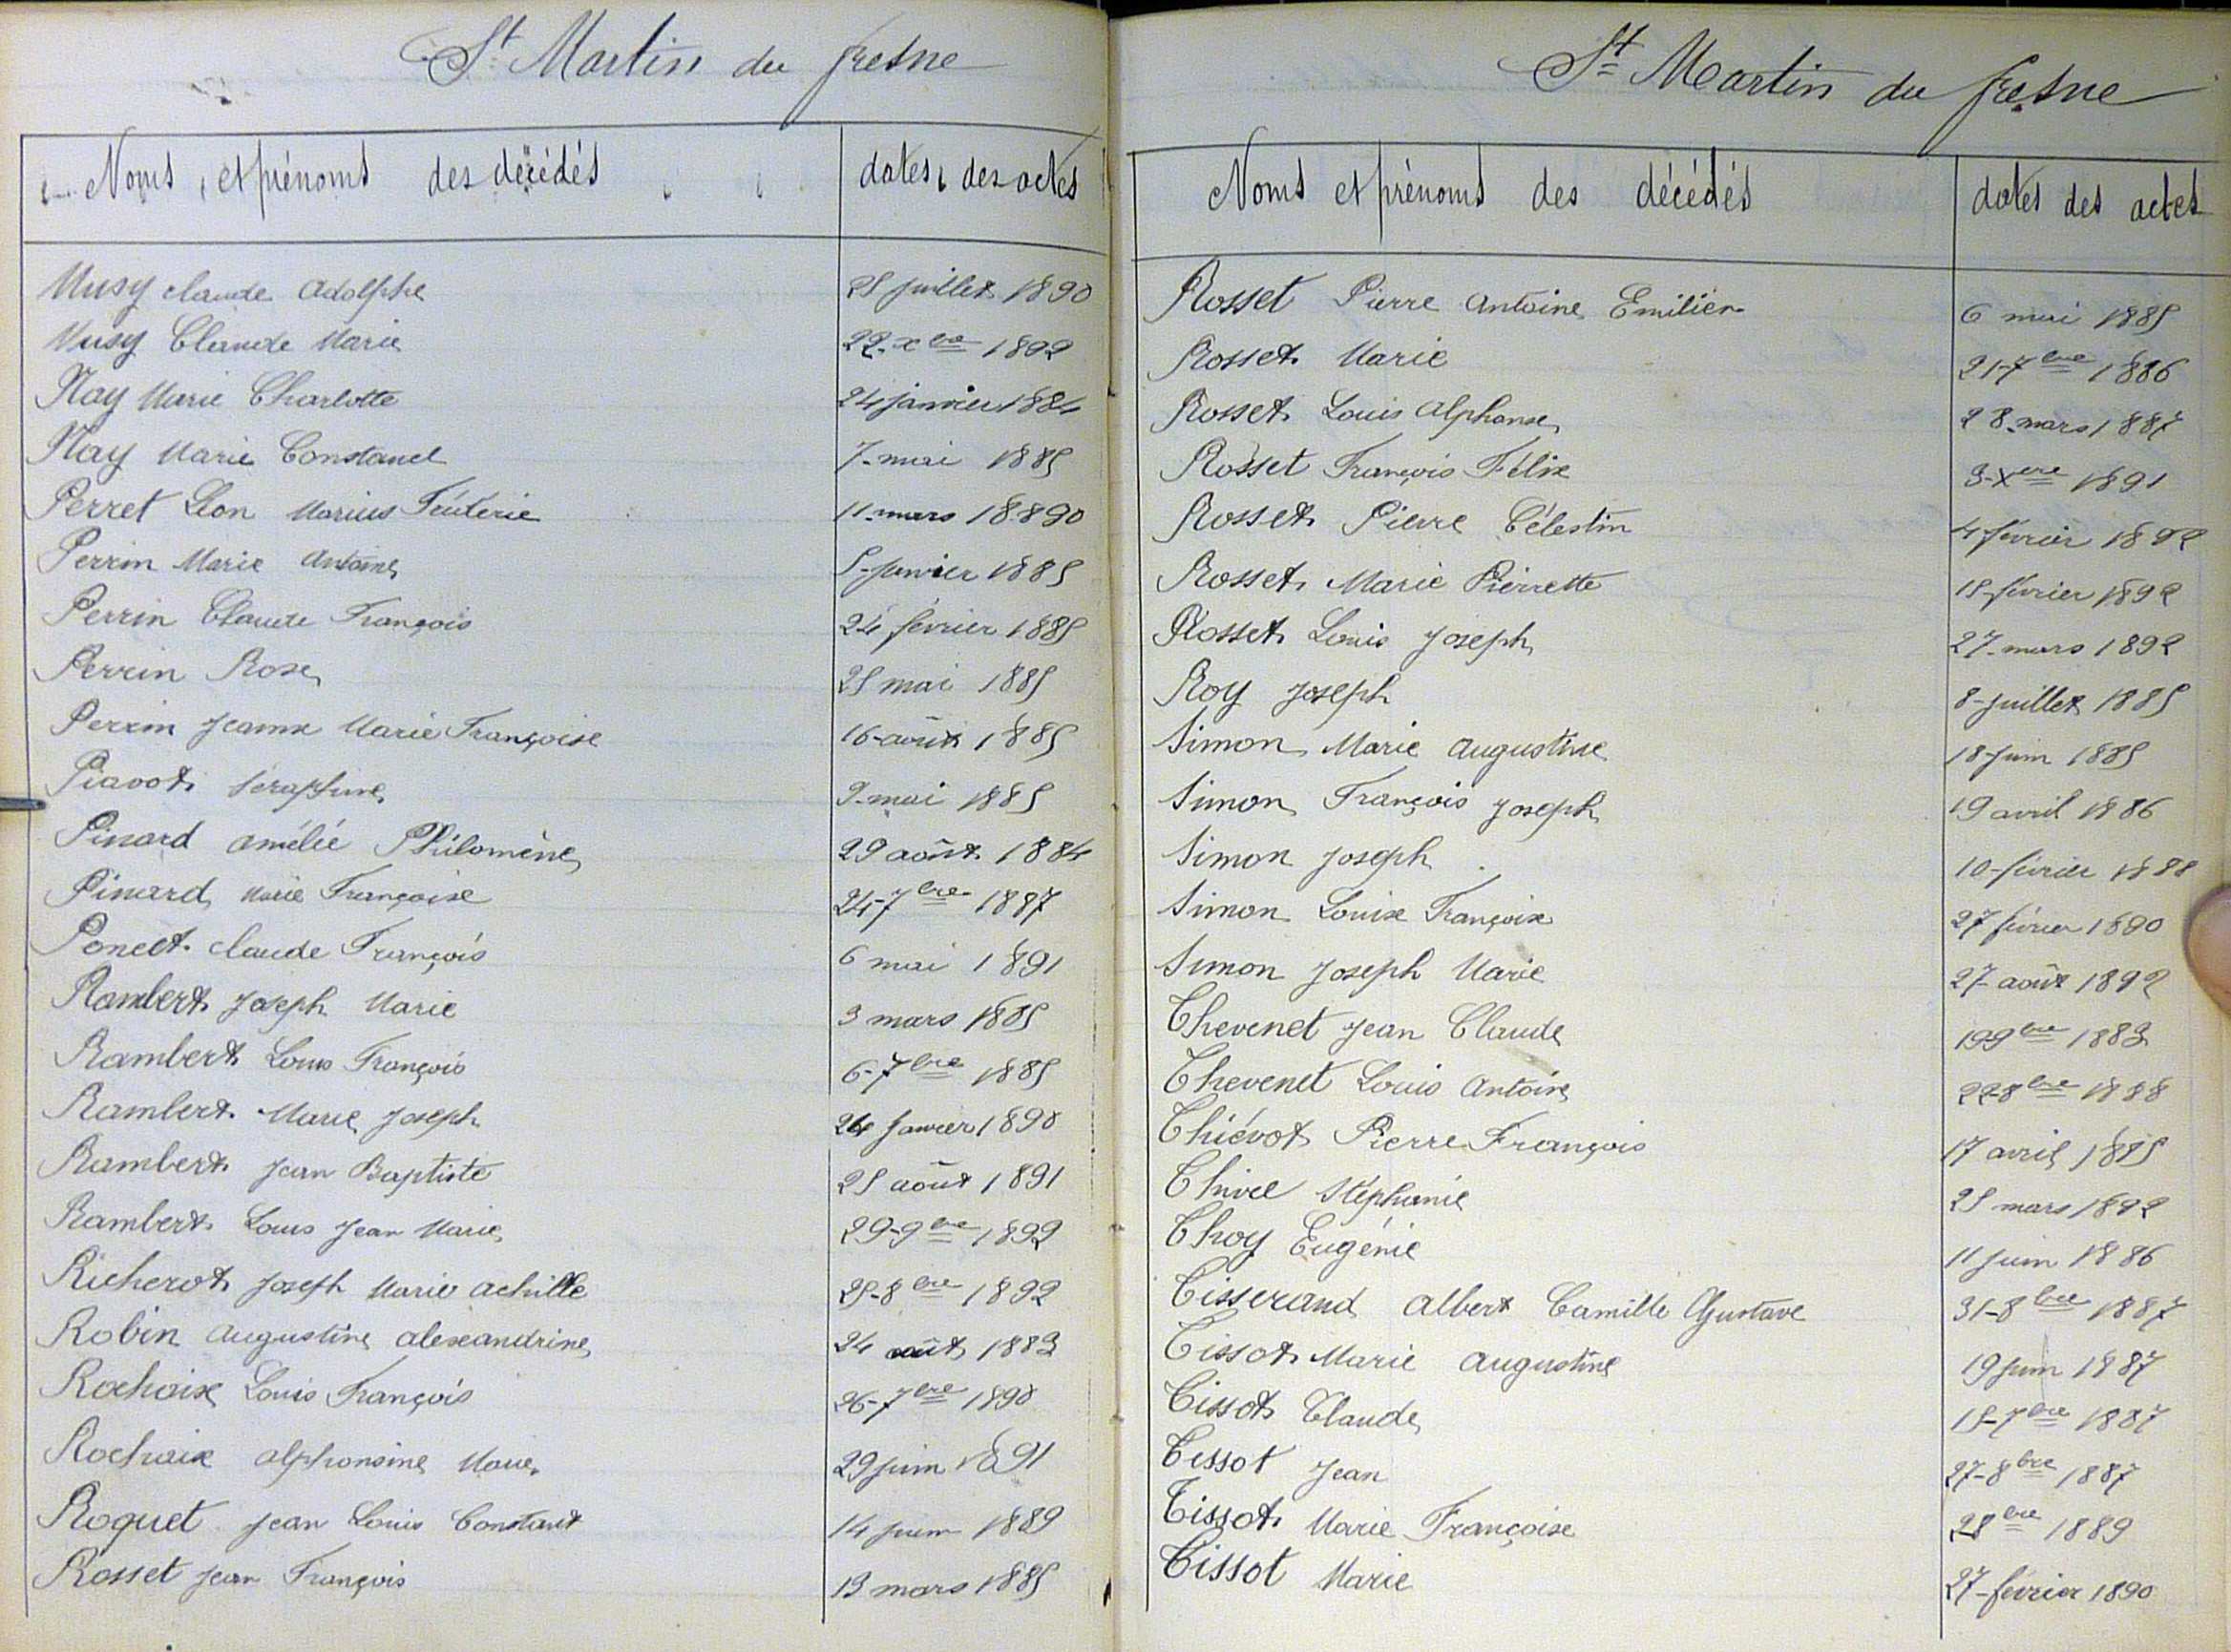 St Martin du fresne
Noms et prénoms des décédés dates des actes
Musy claude Adolphe 25 juillet 1890
Musy Claude Marie 22-xbre 1892
Nay Marie Charlotte 24 janvier 1884
Nay Marie Constance 7-mai 1885
Perret Léon Marius Frédéric 11-mars 18890
Perrin Marie Antoine 5-janvier 1885
Perrin Claude François 24 février 1885
Perrin Rose 25 mai 1885
Perrin Jeanne Marie Françoise 16-août 1885
Piavot Séraphine 9-mai 1885
Pinard amélie Philomène 29 août 1884
Pinard Marie Françoise 24-7bre 1887
Poncet claude François 6 mai 1891
Rambert Joseph Marie 3 mars 1885
Rambert Louis François 6-7bre 1885
Rambert Marie Joseph 24 janvier 1890
Rambert Jean Baptiste 25 août 1891
Rambert Louis Jean Marie 29-9bre 1892
Richerot Joseph Marie achille 25-8bre 1892
Robin Augustine alexandrine 24 août 1883
Rochaix Louis François 26-7bre 1890
Rochaix alphonsine Marie 29 juin 1891
Roquet Jean Louis Constant 14 juin 1889
Rosset Jean François 13 mars 1885
St Martin du fresne
Noms et prénoms des décédés dates des actes
Rosset Pierre Antoine Emilien 6 mai 1885
Rosset Marie 21-7bre 1886
Rosset Louis Alphonse 28-mars 1887
Rosset François Félix 3-xbre 1891
Rosset Pierre Célestin 4 février 1892
Rosset Marie Pierrette 15-février 1892
Rosset Louis Joseph 27-mars 1892
Roy Joseph 8-juillet 1885
Simon Marie Augustine 18-juin 1885
Simon François Joseph 19 avril 1886
Simon Joseph 10-février 1888
Simon Louise Françoise 27 février 1890
Simon Joseph Marie 27-août 1892
Thevenet Jean Claude 19-9bre 1883
Thevenet Louis Antoine 22-8bre 1888
Thiévot Pierre François 17 avril 1885
Thivel Stéphanie 25 mars 1892
Thoy Eugénie 11 juin 1886
Tisserand Albert Camille Gustave 31-8bre 1887
Tissot Marie Augustine 19 juin 1887
Tissot Claude 15-7bre 1887
Tissot Jean 27-8bre 1887
Tissot Marie Françoise 28bre 1889
Tissot Marie 27-février 1890